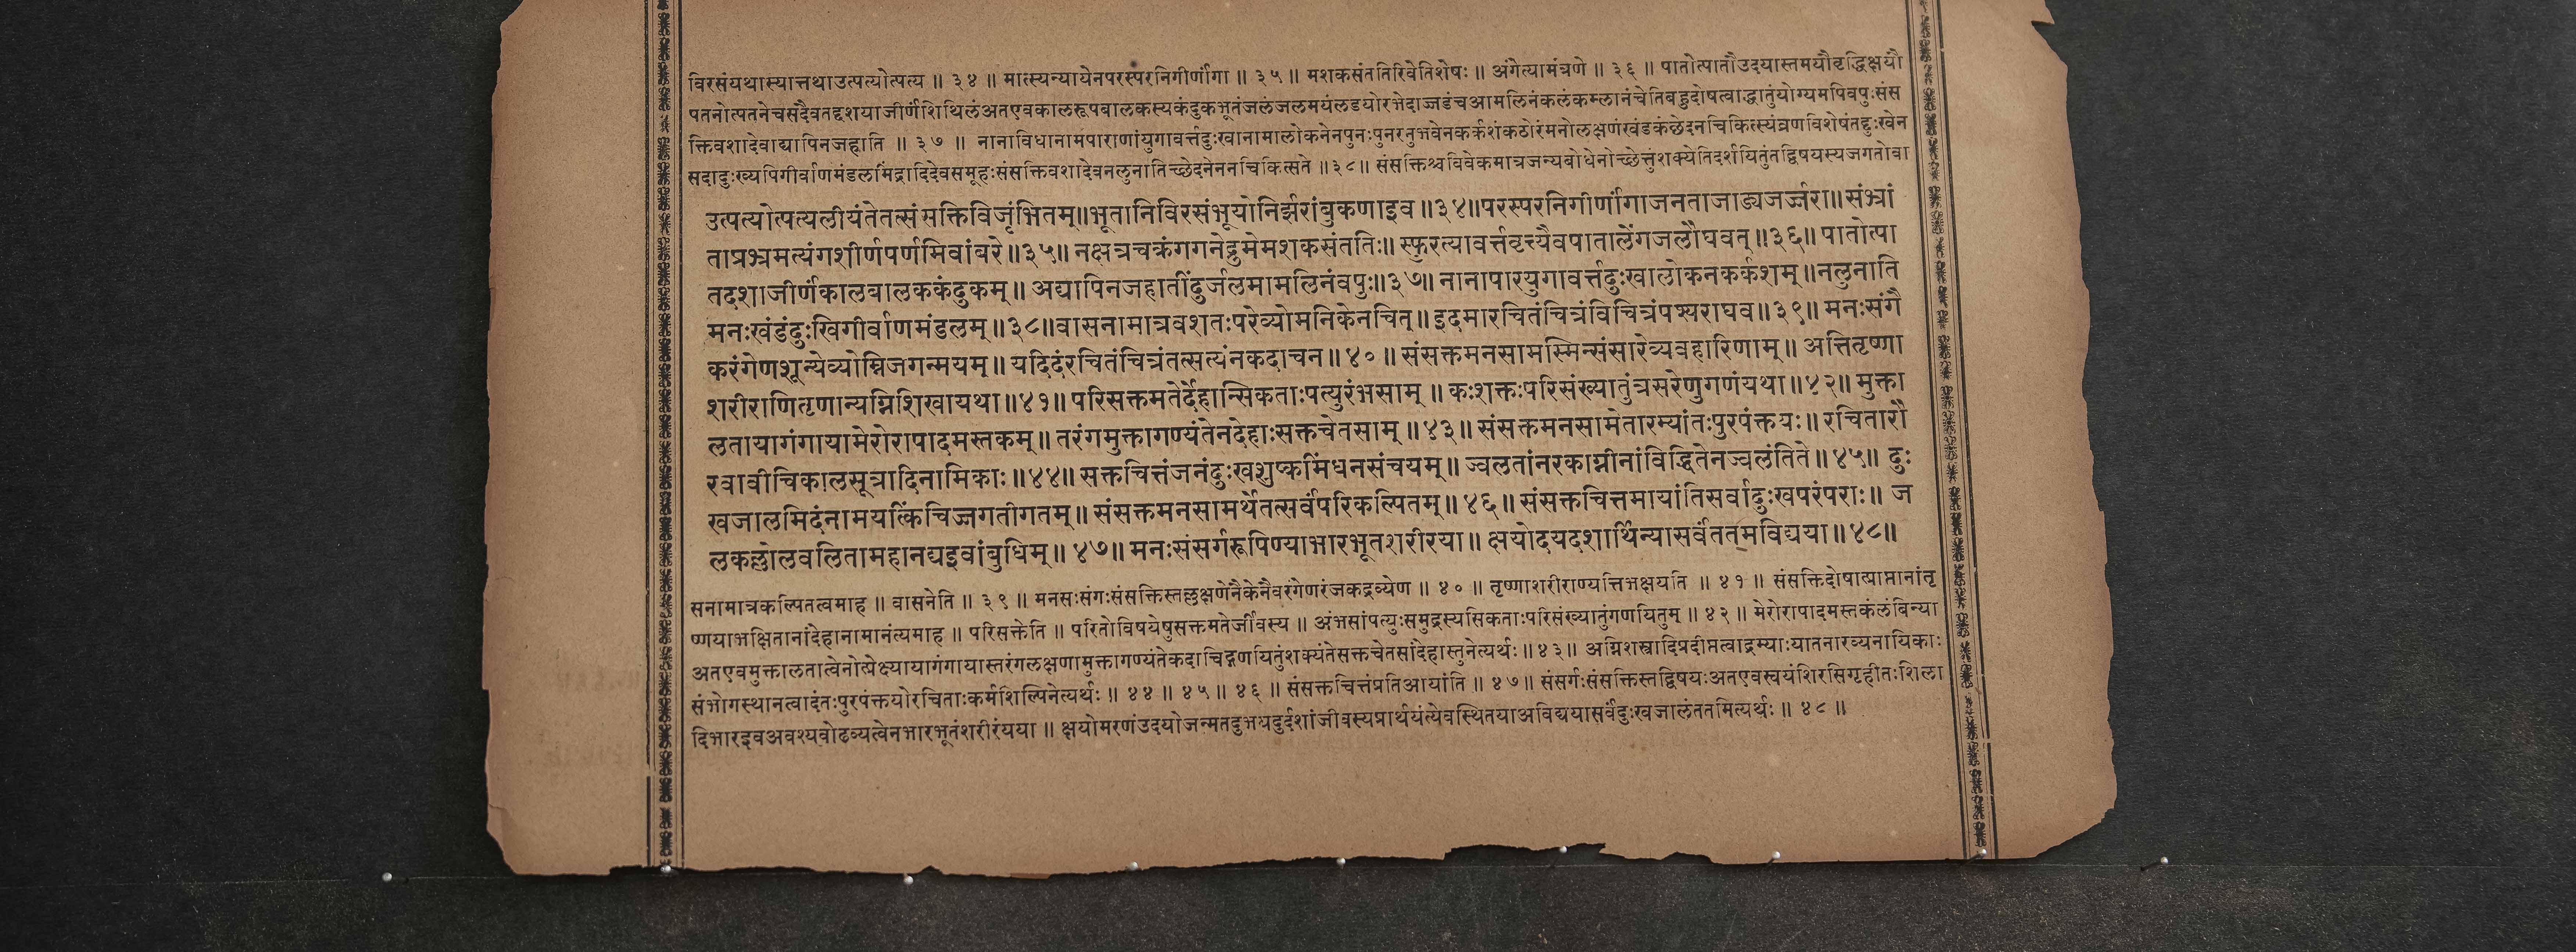 विरसंयथास्यात्तथाउत्पत्योत्पत्य ॥ ३४ ॥ मात्स्यन्यायेनपरस्परनिगीर्णांगा ॥ ३५ ॥ मशकसंततिरिवेतिशेषः ॥ अंगेत्यामंत्रणे ॥ ३६ ॥ पातोत्पातौउदयास्तमयौवृद्धिक्षयौ
पतनोत्पतनेचसदैवतद्दशयाजीर्णशिथिलंअतएवकालरूपबालकस्यकंदुकभूतंजलंजलमयंलडयोरभेदाज्जडंचआमलिनंकलंकम्लानंचेतिबहुदोषत्वाद्धातुंयोग्यमपिवपुःसंस
क्तिवशादेवाद्यापिनजहाति ॥ ३७ ॥ नानाविधानामपाराणांयुगावर्त्तदुःखानामालोकनेनपुनःपुनरनुभवेनकर्कशंकठोरंमनोलक्षणंखंडकंछेदनचिकित्स्यंव्रणविशेषंतद्दुःखेन
सदादुःख्यपिगीर्वाणमंडलमिंद्रादिदेवसमूहःसंसक्तिवशादेवनलुनातिच्छेदनेननचिकित्सते ॥३८॥ संसक्तिश्चविवेकमात्रजन्यबोधेनोच्छेत्तुंशक्येतिदर्शयितुंतद्विषयस्यजगतोवा
उत्पत्योत्पत्यलीयंतेतत्संसक्तिविजृंभितम्॥भूतानिविरसंभूयोनिर्झरांबुकणाइव॥३४॥परस्परनिगीर्णांगाजनताजाड्यजर्ज्जरा॥संभ्रां
ताप्रभ्रमत्यंगशीर्णपर्णमिवांबरे॥३५॥ नक्षत्रचक्रंगगनेद्रुमेमशकसंततिः॥ स्फुरत्यावर्त्तवृत्त्यैवपातालेंगजलौघवत्॥३६॥ पातोत्पा
तदशाजीर्णकालबालककंदुकम्॥ अद्यापिनजहातींदुर्जलमामलिनंवपुः॥३७॥ नानापारयुगावर्त्तदुःखालोकनकर्कशम्॥नलुनाति
मनःखंडंदुःखिगीर्वाणमंडलम्॥३८॥वासनामात्रवशतःपरेव्योमनिकेनचित्॥इदमारचितंचित्रंविचित्रंपश्यराघव॥३९॥ मनःसंगै
करंगेणशून्येव्योम्निजगन्मयम्॥ यदिदंरचितंचित्रंतत्सत्यंनकदाचन॥४०॥ संसक्तमनसामस्मिन्संसारेव्यवहारिणाम्॥ अत्तितृष्णा
शरीराणितृणान्यग्निशिखायथा॥४१॥ परिसक्तमतेर्देहान्सिकताःपत्युरंभसाम् ॥ कःशक्तःपरिसंख्यातुंत्रसरेणुगणंयथा॥४२॥ मुक्ता
लतायागंगायामेरोरापादमस्तकम्॥ तरंगमुक्तागण्यंतेनदेहाःसक्तचेतसाम् ॥४३॥ संसक्तमनसामेतारम्यांतःपुरपंक्तयः॥ रचितारौ
रवावीचिकालसूत्रादिनामिकाः॥४४॥ सक्तचित्तंजनंदुःखशुष्कमिंधनसंचयम्॥ ज्वलतांनरकाग्नीनांविद्धितेनज्वलंतिते॥४५॥ दुः
खजालमिदंनामयत्किंचिज्जगतीगतम्॥ संसक्तमनसामर्थेतत्सर्वंपरिकल्पितम्॥ ४६॥ संसक्तचित्तमायांतिसर्वादुःखपरंपराः॥ ज
लकल्लोलवलितामहानद्यइवांबुधिम्॥ ४७॥ मनःसंसर्गरूपिण्याभारभूतशरीरया॥ क्षयोदयदशार्थिन्यासर्वंततमविद्यया॥४८॥
सनामात्रकल्पितत्वमाह ॥ वासनेति ॥ ३९ ॥ मनसःसंगःसंसक्तिस्तल्लक्षणेनैकेनैवरंगेणरंजकद्रव्येण ॥ ४० ॥ तृष्णाशरीराण्यत्तिभक्षयति ॥ ४१ ॥ संसक्तिदोषात्प्राप्तानांतृ
ष्णयाभक्षितानांदेहानामानंत्यमाह ॥ परिसक्तेति ॥ परितोविषयेषुसक्तमतेर्जीवस्य ॥ अंभसांपत्युःसमुद्रस्यसिकताःपरिसंख्यातुंगणयितुम् ॥ ४२ ॥ मेरोरापादमस्तकंलंबिन्या
अतएवमुक्तालतात्वेनोत्प्रेक्ष्यायागंगायास्तरंगलक्षणामुक्तागण्यंतेकदाचिद्गणयितुंशक्यंतेसक्तचेतसांदेहास्तुनेत्यर्थः॥४३॥ अग्निशस्त्रादिप्रदीप्तत्वाद्रम्याःयातनारव्यनायिकाः
संभोगस्थानत्वादंतःपुरपंक्तयोरचिताःकर्मशिल्पिनेत्यर्थः ॥ ४४ ॥ ४५ ॥ ४६ ॥ संसक्तचित्तंप्रतिआयांति ॥ ४७॥ संसर्गःसंसक्तिस्तद्विषयःअतएवस्वयंशिरसिगृहीतःशिला
दिभारइवअवश्यवोढव्यत्वेनभारभूतंशरीरंयया ॥ क्षयोमरणंउदयोजन्मतदुभयदुर्दशांजीवस्यप्रार्थयंत्येवस्थितयाअविद्ययासर्वंदुःखजालंततमित्यर्थः ॥ ४८ ॥